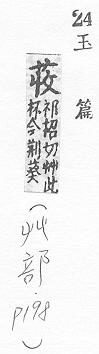 24
玉篇
荍
祁招切艸此
杯今荊葵
(艸部·p198)